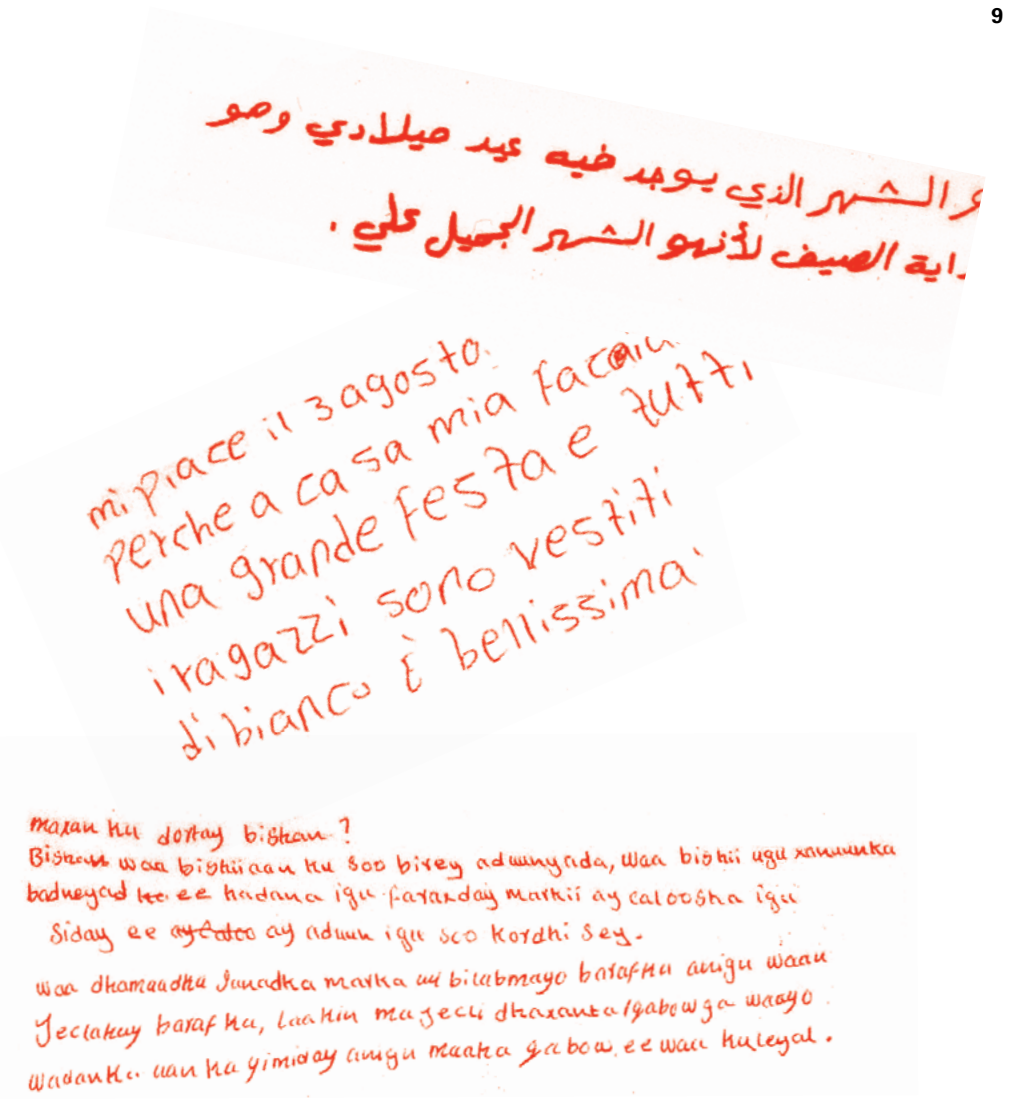 9
الشهر الذي يوجد فيه عيد ميلادي وهو
داية الصيف لأنهو الشهر الجميل علي .
mi piace il 3 agosto.
perche a casa mia
una grande festa e tutti
i ragazzi sono vestiti
di bianco È bellissima
maxau ku dortay bishan ?
Bishan waa bishii aan ku soo birey aduunyada, waa bishii ugu xanuunka
badneyed ee hadana igu faraxday markii ay caloosha igu
siday ee ay aduun igu soo kordhisey.
waa dhamaadka Janadka marka uu bilabmayo barafku anigu waan
Jeclahay baraf ka, laakin majecli dhaxanta/gabowga waayo
wadanka aan ka yimiday anigu maaha gabow, ee waa kuleyal.